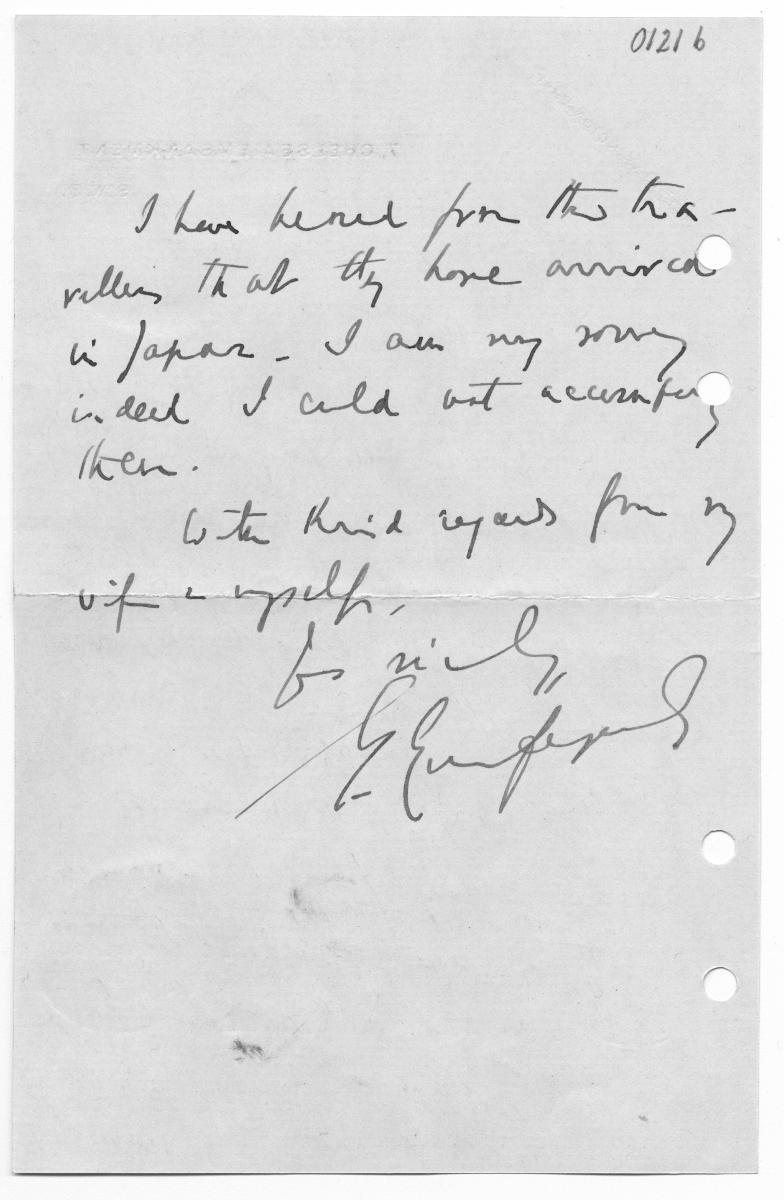 0121 b
7, CHELSEA EMBANKMENT
S.W.3.
I have heard from the tra-
vellers that they have arrived
in Japan - I am very sorry
indeed I could not accompany
them.
With kind regards from my
wife & myself,
Yrs sincerely
G Eumorfopoulos